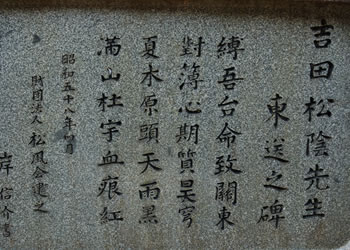 吉田松陰先生
東送之碑
縛吾台命致關東
對簿心期質昊穹
夏木原頭天雨黒
満山杜宇血痕紅
昭和五十八年 月
財団法人 松風会建之
岸信介書